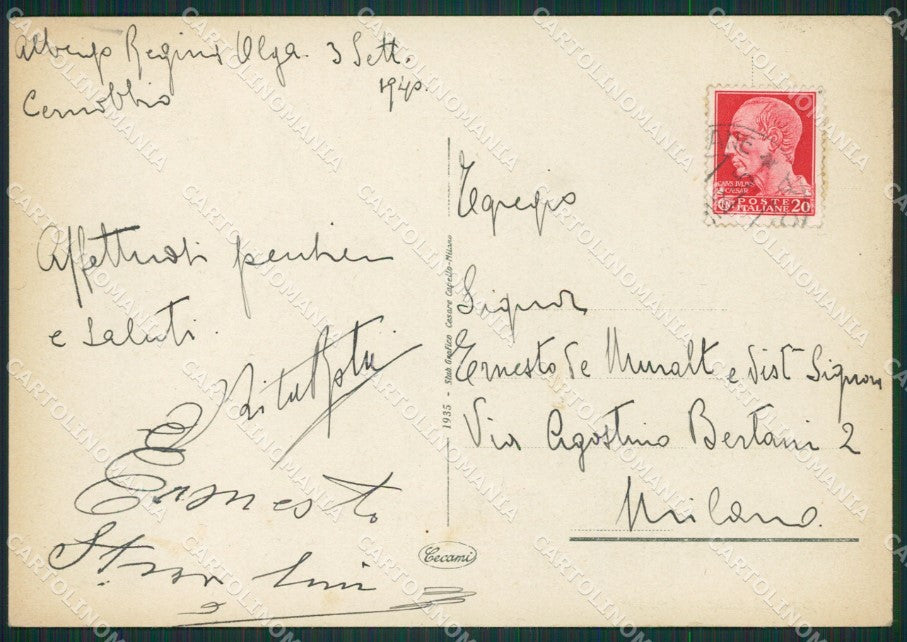 Albergo Regina Olga. 3 Sett.
1940.
Cernobbio
Affettuosi pensieri
e saluti.
Ernesto
Egregio
Signor
Ernesto de Muralt e dist Signora
Via Agostino Bertani 2
Milano
1935 - Stab Grafico Cesare Capello-Milano
Cecami
CAIVS IVLIVS
CAESAR
POSTE
ITALIANE 20
CARTOLINOMANIA